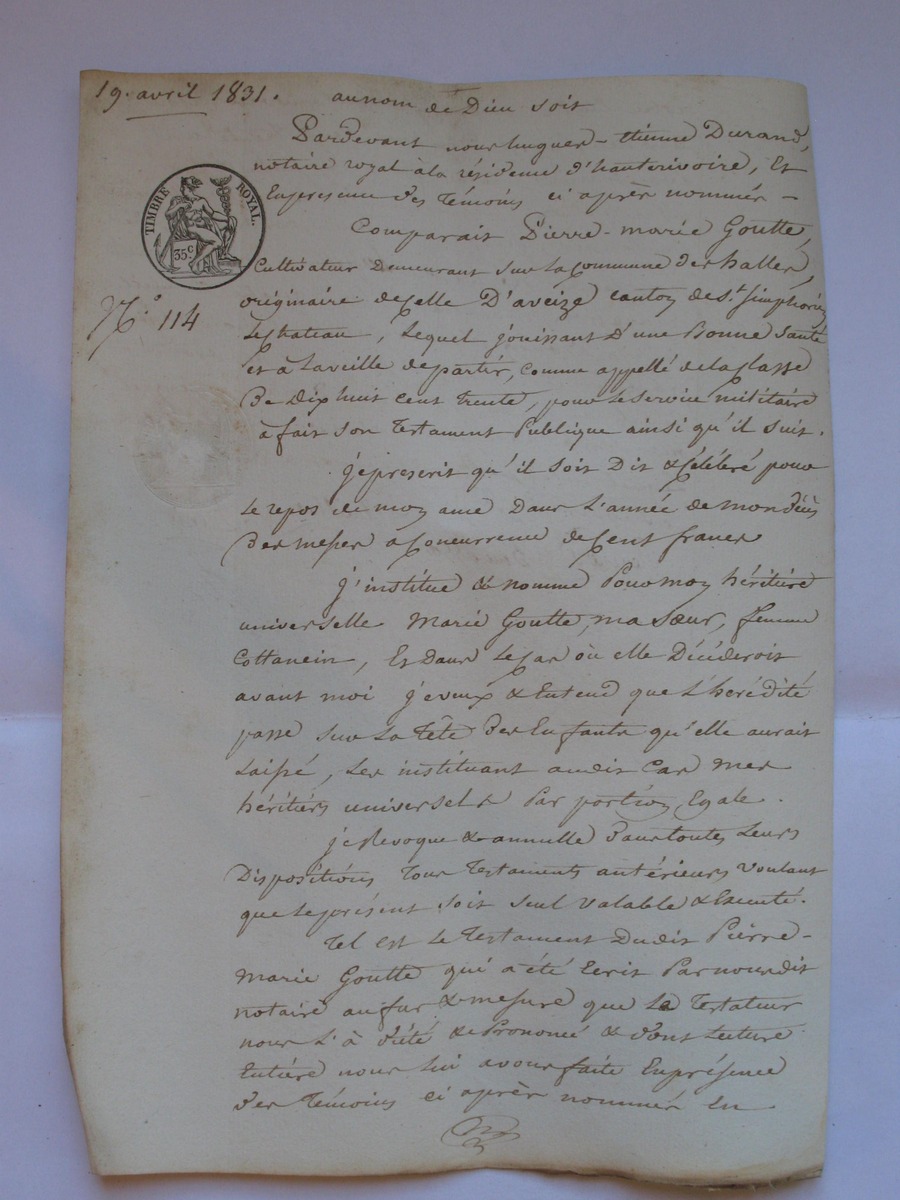 19. avril 1831. au nom de Dieu soit
Pardevant nous hugues-étienne Durand,
notaire royal à la résidence d'hauterivoire, Et
En presence des Témoins ci après nommés –
TIMBRE ROYAL.
35 c.
Comparait Pierre-marie Goutte,
Cultivateur Demeurant sur la Commune des halles,
N.° 114
originaire de celle D'aveize canton de St. Simphorien
Le chateau, Lequel jouissant D'une Bonne Santé
et à La veille de partir, comme appellé de la Classe
De Dix huit cent trente, pour le service militaire
à fait son Testament Publique ainsi qu'il suit.
je prescrit qu'il soit Dit & Célébré pour
Le repos de mon ame Dans L'année de mon Décès
Des messes a Concurrence de Cent francs
J'institue & nomme Pour mon héritière
universelle Marie Goutte, ma Sœur, femme
Cottancin, Et Dans Le Cas où elle Décéderoit
avant moi je veux & Entend que L'hérédité
passe sur La Tête Des Enfants qu'elle aurait
Laissé, Les instituant audit Cas mes
héritiers universels Par portion Egale.
je Revoque & annulle Dans toutes Leurs
Dispositions Tous Testaments antérieurs voulant
que Le présent soit seul valable & Executé.
Tel est Le Testament Dudit Pierre-
Marie Goutte qui a été Ecrit Par nous dit
notaire au fur & mesure que Le Testateur
nous L'à dicté & Prononcé & dont Lecture
Entière nous Lui avons faite En présence
des Témoins ci après nommés En